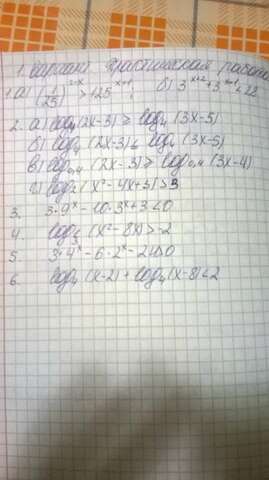 1. вариант практическая работа
1. а) (1/25)^{2-x} > 125^{x+1}; б) 3^{x+2} + 3^{x-1} < 28
2. а) log₄ (2x-3) ≥ log₄ (3x-5)
б) log (2x-3) ≤ log (3x-5)
в) log₀,₄ (2x-3) ≥ log₀,₄ (3x-4)
г) log₂ (x²-4x+3) > 3
3. 3·9ˣ - 10·3ˣ + 3 < 0
4. log (x²-8x) > -2
5. 3·4ˣ - 6·2ˣ - 24 > 0
6. log₄ (x-2) + log₄ (x-8) < 2